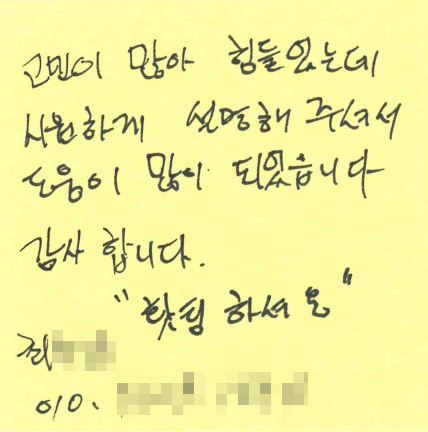 고민이 많아 힘들었는데
시원하게 설명해 주셔서
도움이 많이 되었습니다
감사 합니다.
"핫팅 하셔요"
최
010.